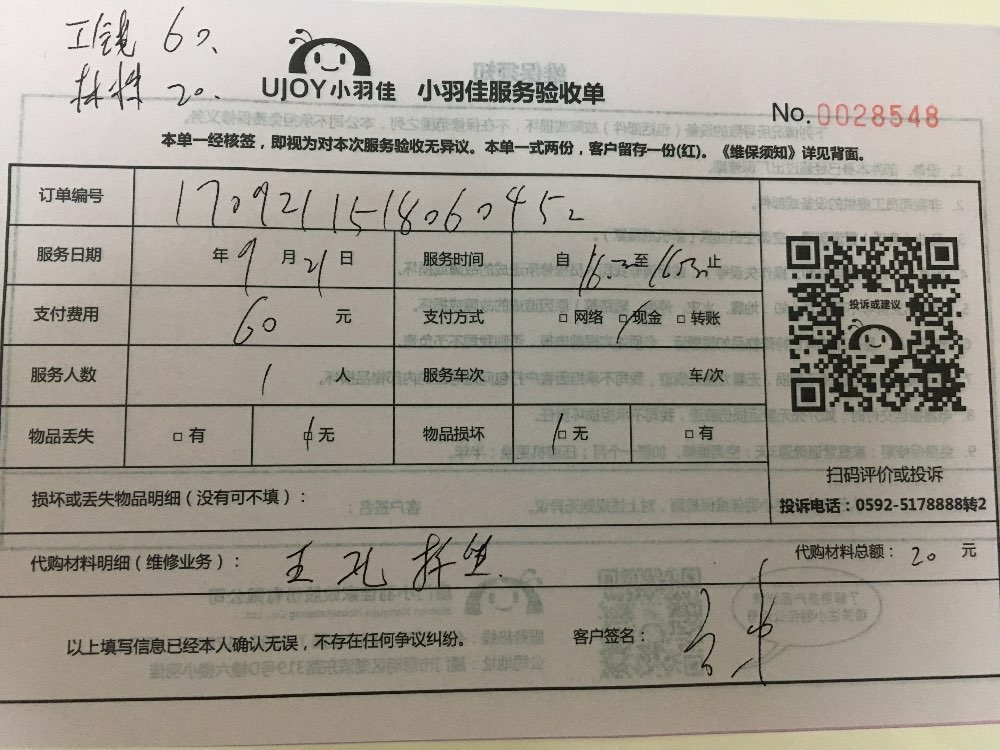 工钱 60.
材料 20.
UJOY小羽佳 小羽佳服务验收单
No.0028548
本单一经核签，即视为对本次服务验收无异议。本单一式两份，客户留存一份(红)。《维保须知》详见背面。
订单编号 1709211518060452
服务日期 年 9 月 21 日 服务时间 自 至 止
支付费用 60 元 支付方式 □ 网络 □ 现金 □ 转账
投诉或建议
服务人数 1 人 服务车次 车/次
物品丢失 □ 有 □ 无 物品损坏 □ 无 □ 有
扫码评价或投诉
损坏或丢失物品明细（没有可不填）：
投诉电话：0592-5178888转2
代购材料明细（维修业务）： 代购材料总额：20 元
以上填写信息已经本人确认无误，不存在任何争议纠纷。 客户签名：